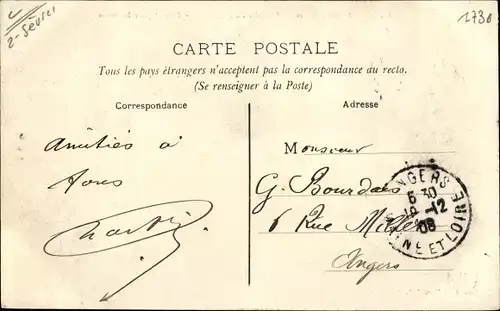 2-Sevres
1730
CARTE POSTALE
Tous les pays étrangers n'acceptent pas la correspondance au recto.
(Se renseigner à la Poste)
Correspondance
Adresse
Amitiés à
tous
Monsieur
G. Bourdais
6 Rue
Angers
ANGERS
6 30
-12
08
MAINE ET LOIRE